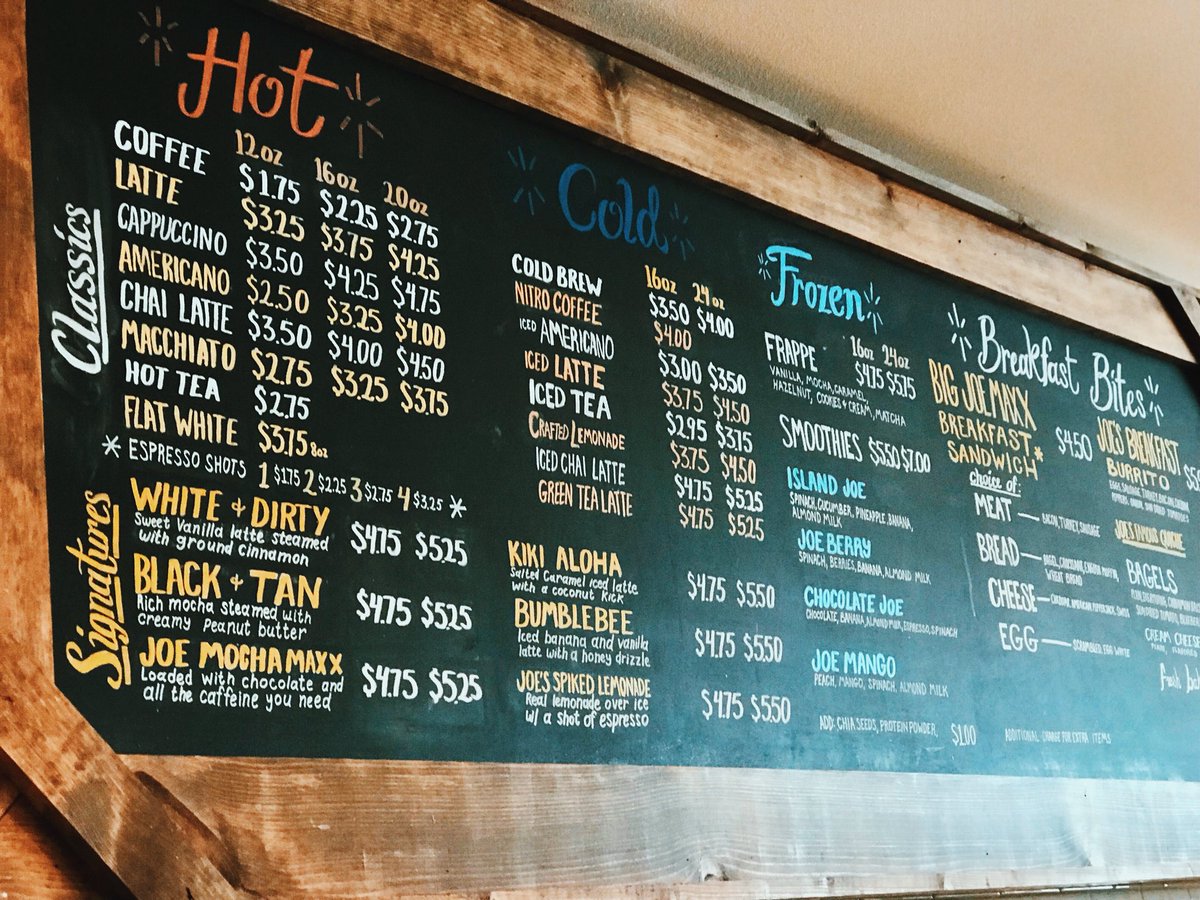 Hot
12oz 16oz 20oz
Classics
COFFEE $1.75 $2.25 $2.75
LATTE $3.25 $3.75 $4.25
CAPPUCCINO $3.50 $4.25 $4.75
AMERICANO $2.50 $3.25 $4.00
CHAI LATTE $3.50 $4.00 $4.50
MACCHIATO $2.75 $3.25 $3.75
HOT TEA $2.75
FLAT WHITE $3.75 8oz
* ESPRESSO SHOTS 1 $1.75 2 $2.25 3 $2.75 4 $3.25 *
Signatures
WHITE + DIRTY $4.75 $5.25
Sweet Vanilla latte steamed
with ground cinnamon
BLACK + TAN $4.75 $5.25
Rich mocha steamed with
creamy peanut butter
JOE MOCHA MAXX $4.75 $5.25
Loaded with chocolate and
all the caffeine you need
Cold
16oz 24oz
COLD BREW $3.50 $4.00
NITRO COFFEE $4.00
ICED AMERICANO $3.00 $3.50
ICED LATTE $3.75 $4.50
ICED TEA $2.95 $3.75
CRAFTED LEMONADE $3.75 $4.50
ICED CHAI LATTE $4.75 $5.25
GREEN TEA LATTE $4.75 $5.25
KIKI ALOHA $4.75 $5.50
Salted Caramel iced latte
with a coconut kick
BUMBLEBEE $4.75 $5.50
Iced banana and vanilla
latte with a honey drizzle
JOE'S SPIKED LEMONADE $4.75 $5.50
Real lemonade over ice
w/ a shot of espresso
Frozen
16oz 24oz
FRAPPE $4.75 $5.75
VANILLA, MOCHA, CARAMEL,
HAZELNUT, COOKIES & CREAM, MATCHA
SMOOTHIES $5.50 $7.00
ISLAND JOE
SPINACH, CUCUMBER, PINEAPPLE, BANANA,
ALMOND MILK
JOE BERRY
SPINACH, BERRIES, BANANA, ALMOND MILK
CHOCOLATE JOE
CHOCOLATE, BANANA, ALMOND MILK, ESPRESSO, SPINACH
JOE MANGO
PEACH, MANGO, SPINACH, ALMOND MILK
ADD: CHIA SEEDS, PROTEIN POWDER, $1.00
Breakfast Bites
BIG JOE MAXX
BREAKFAST
SANDWICH* $4.50
choice of:
MEAT — BACON, TURKEY, SAUSAGE
BREAD — BAGEL, CROISSANT, ENGLISH MUFFIN,
WHEAT BREAD
CHEESE — CHEDDAR, AMERICAN, PEPPERJACK, SWISS
EGG — SCRAMBLED, EGG WHITE
ADDITIONAL CHARGE FOR EXTRA ITEMS
JOE'S BREAKFAST
BURRITO
JOE'S FAMOUS QUICHE
BAGELS
CREAM CHEESE
PLAIN, FLAVORED